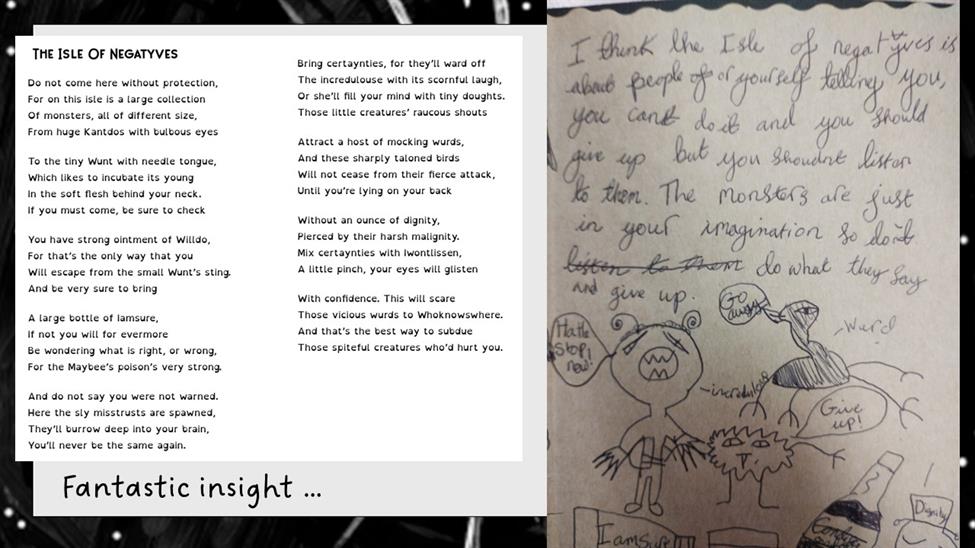 THE ISLE OF NEGATYVES
Do not come here without protection,
For on this isle is a large collection
Of monsters, all of different size,
From huge Kantdos with bulbous eyes
To the tiny Wunt with needle tongue,
Which likes to incubate its young
In the soft flesh behind your neck.
If you must come, be sure to check
You have strong ointment of Willdo,
For that's the only way that you
Will escape from the small Wunt's sting.
And be very sure to bring
A large bottle of Iamsure,
If not you will for evermore
Be wondering what is right, or wrong,
For the Maybee's poison's very strong.
And do not say you were not warned.
Here the sly misstrusts are spawned,
They'll burrow deep into your brain,
You'll never be the same again.
Bring certaynties, for they'll ward off
The incredulouse with its scornful laugh,
Or she'll fill your mind with tiny doughts.
Those little creatures' raucous shouts
Attract a host of mocking wurds,
And these sharply taloned birds
Will not cease from their fierce attack,
Until you're lying on your back
Without an ounce of dignity,
Pierced by their harsh malignity.
Mix certaynties with iwontlissen,
A little pinch, your eyes will glisten
With confidence. This will scare
Those vicious wurds to Whoknowswhere.
And that's the best way to subdue
Those spiteful creatures who'd hurt you.
Fantastic insight ...
I think the Isle of negatyves is
about people of or yourself telling you,
you cant do it and you should
give up but you shoudnt listen
to them. The monsters are just
in your imagination so don't
listen to them do what they say
and give up.
Go away
wurd
Hathe
stop!
now!
Give
up!
Iamsure
Dignity